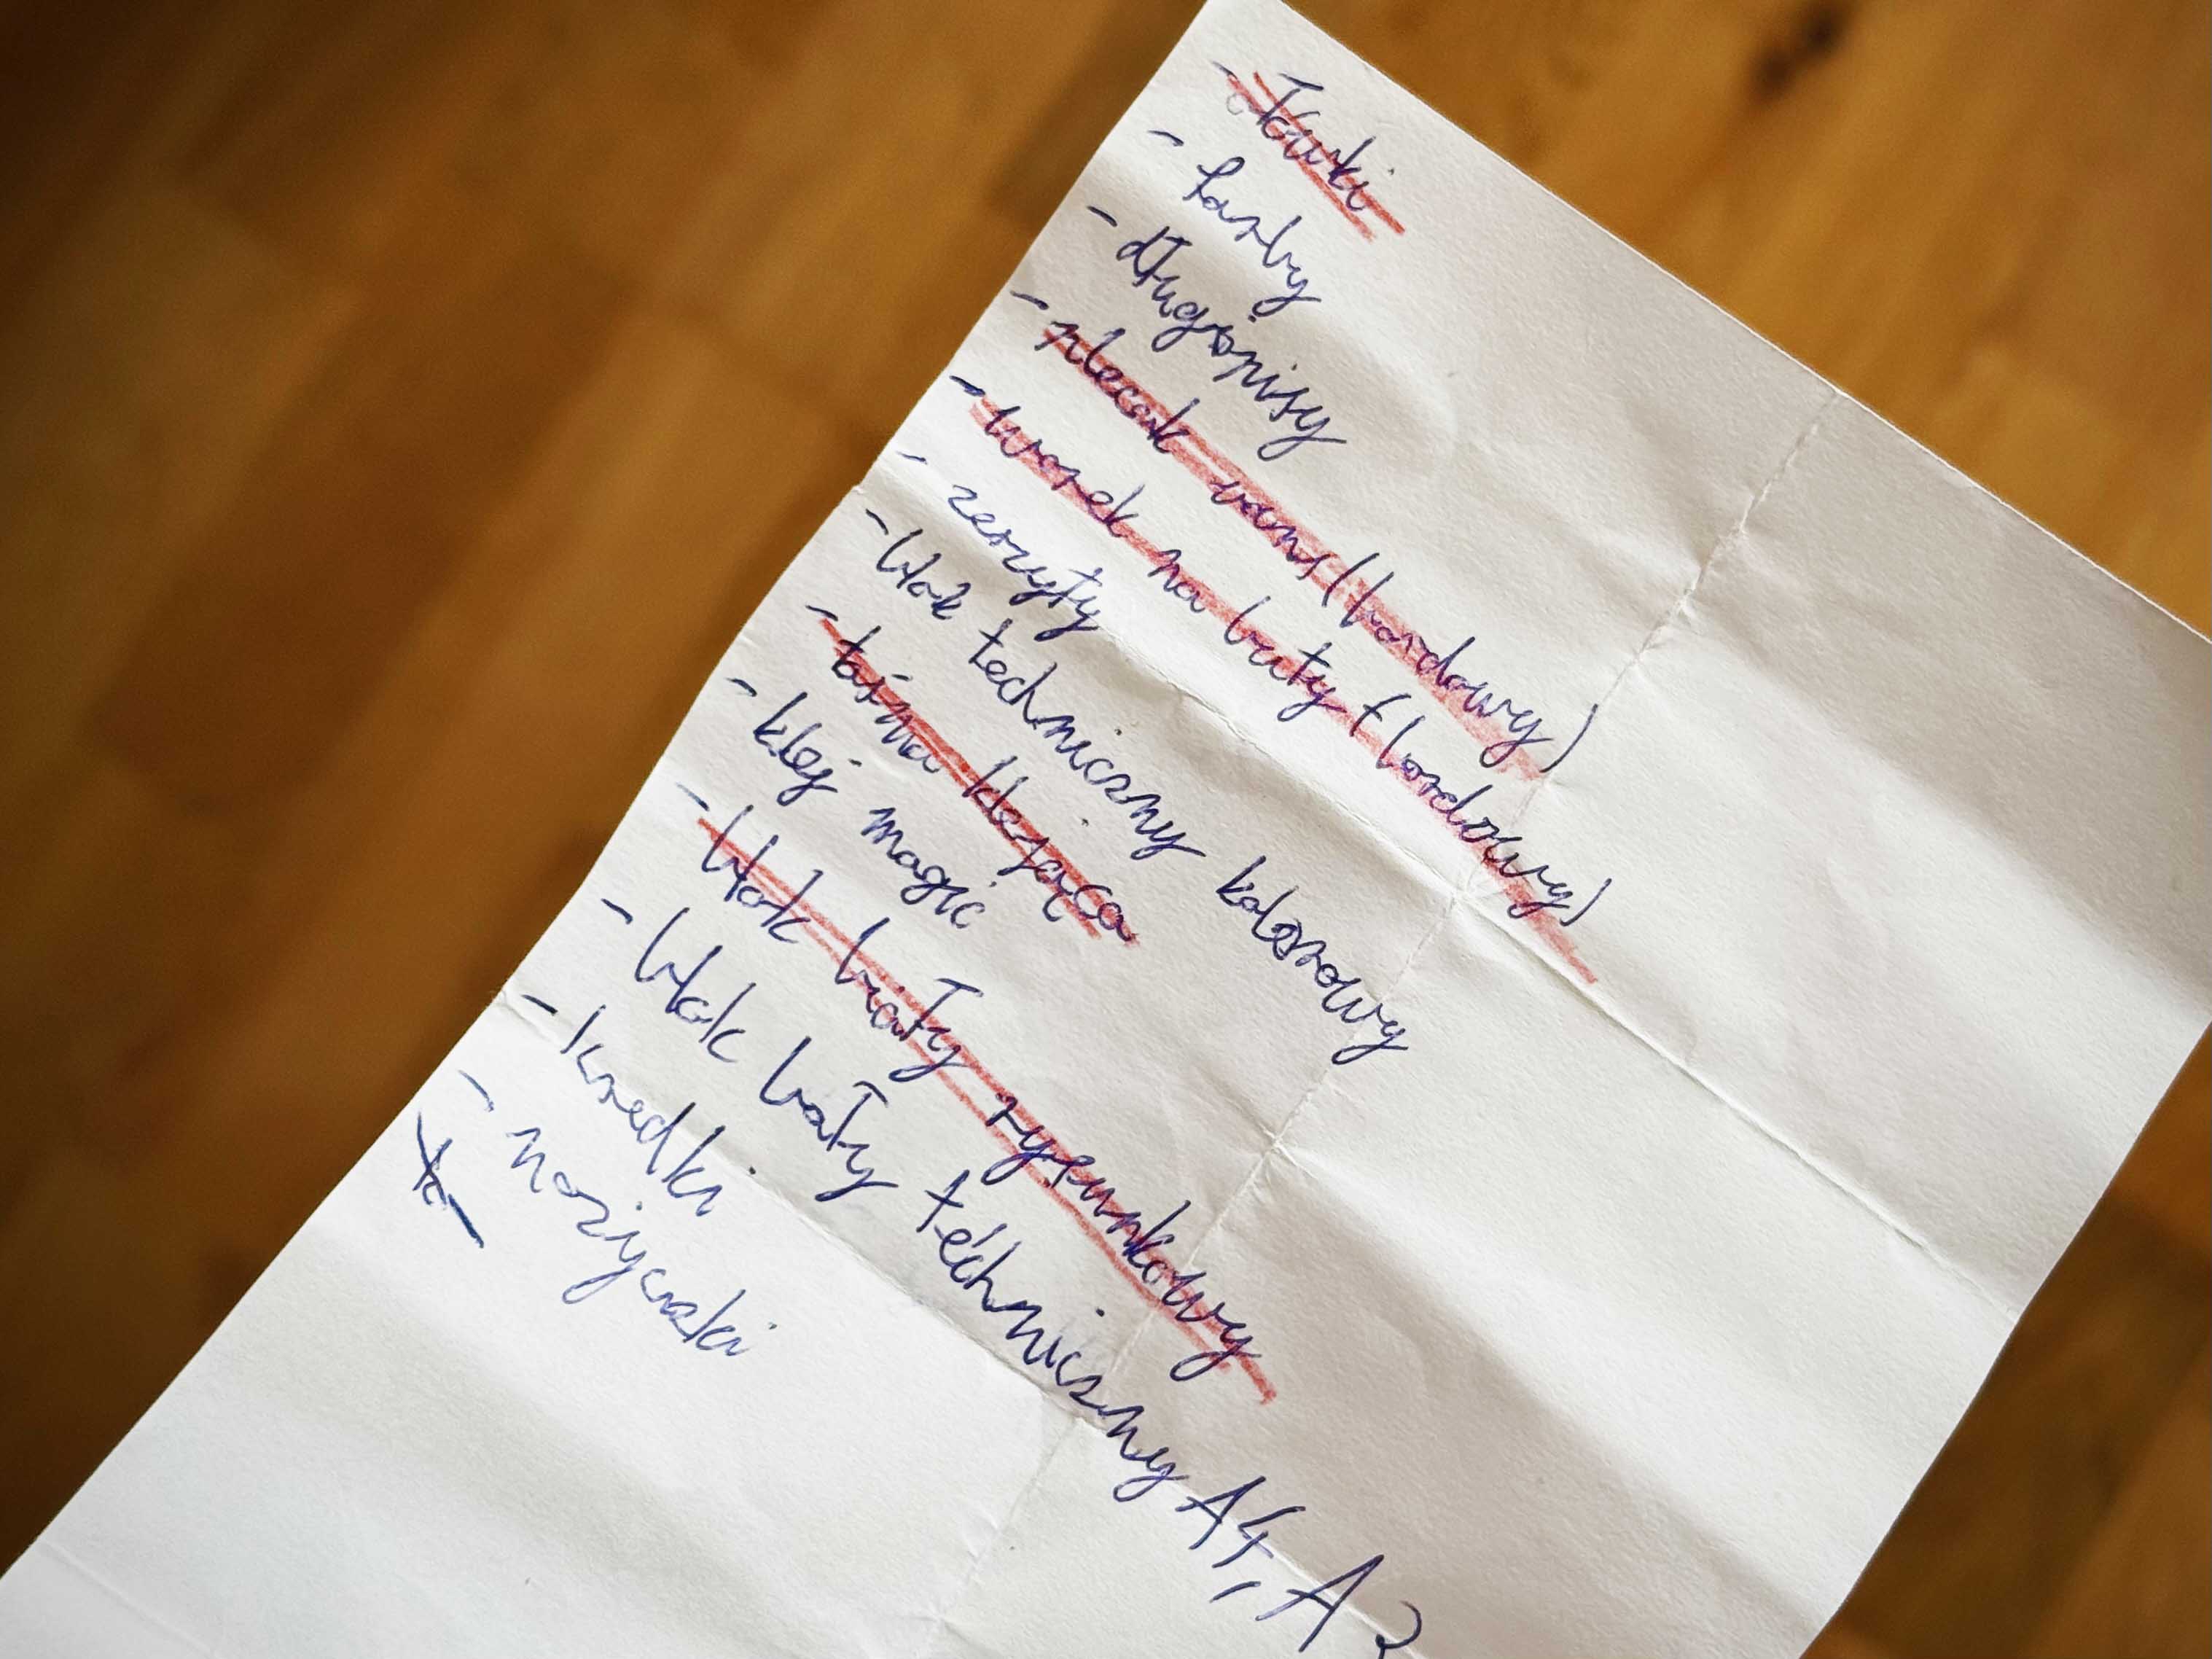 - ołówki
- farby
- długopisy
- plecak vans (bordowy)
- worek na buty (bordowy)
- zeszyty
- blok techniczny kolorowy
- taśma klejąca
- klej magic
- blok biały rysunkowy
- blok biały techniczny A4, A3
- kredki
- nożyczki